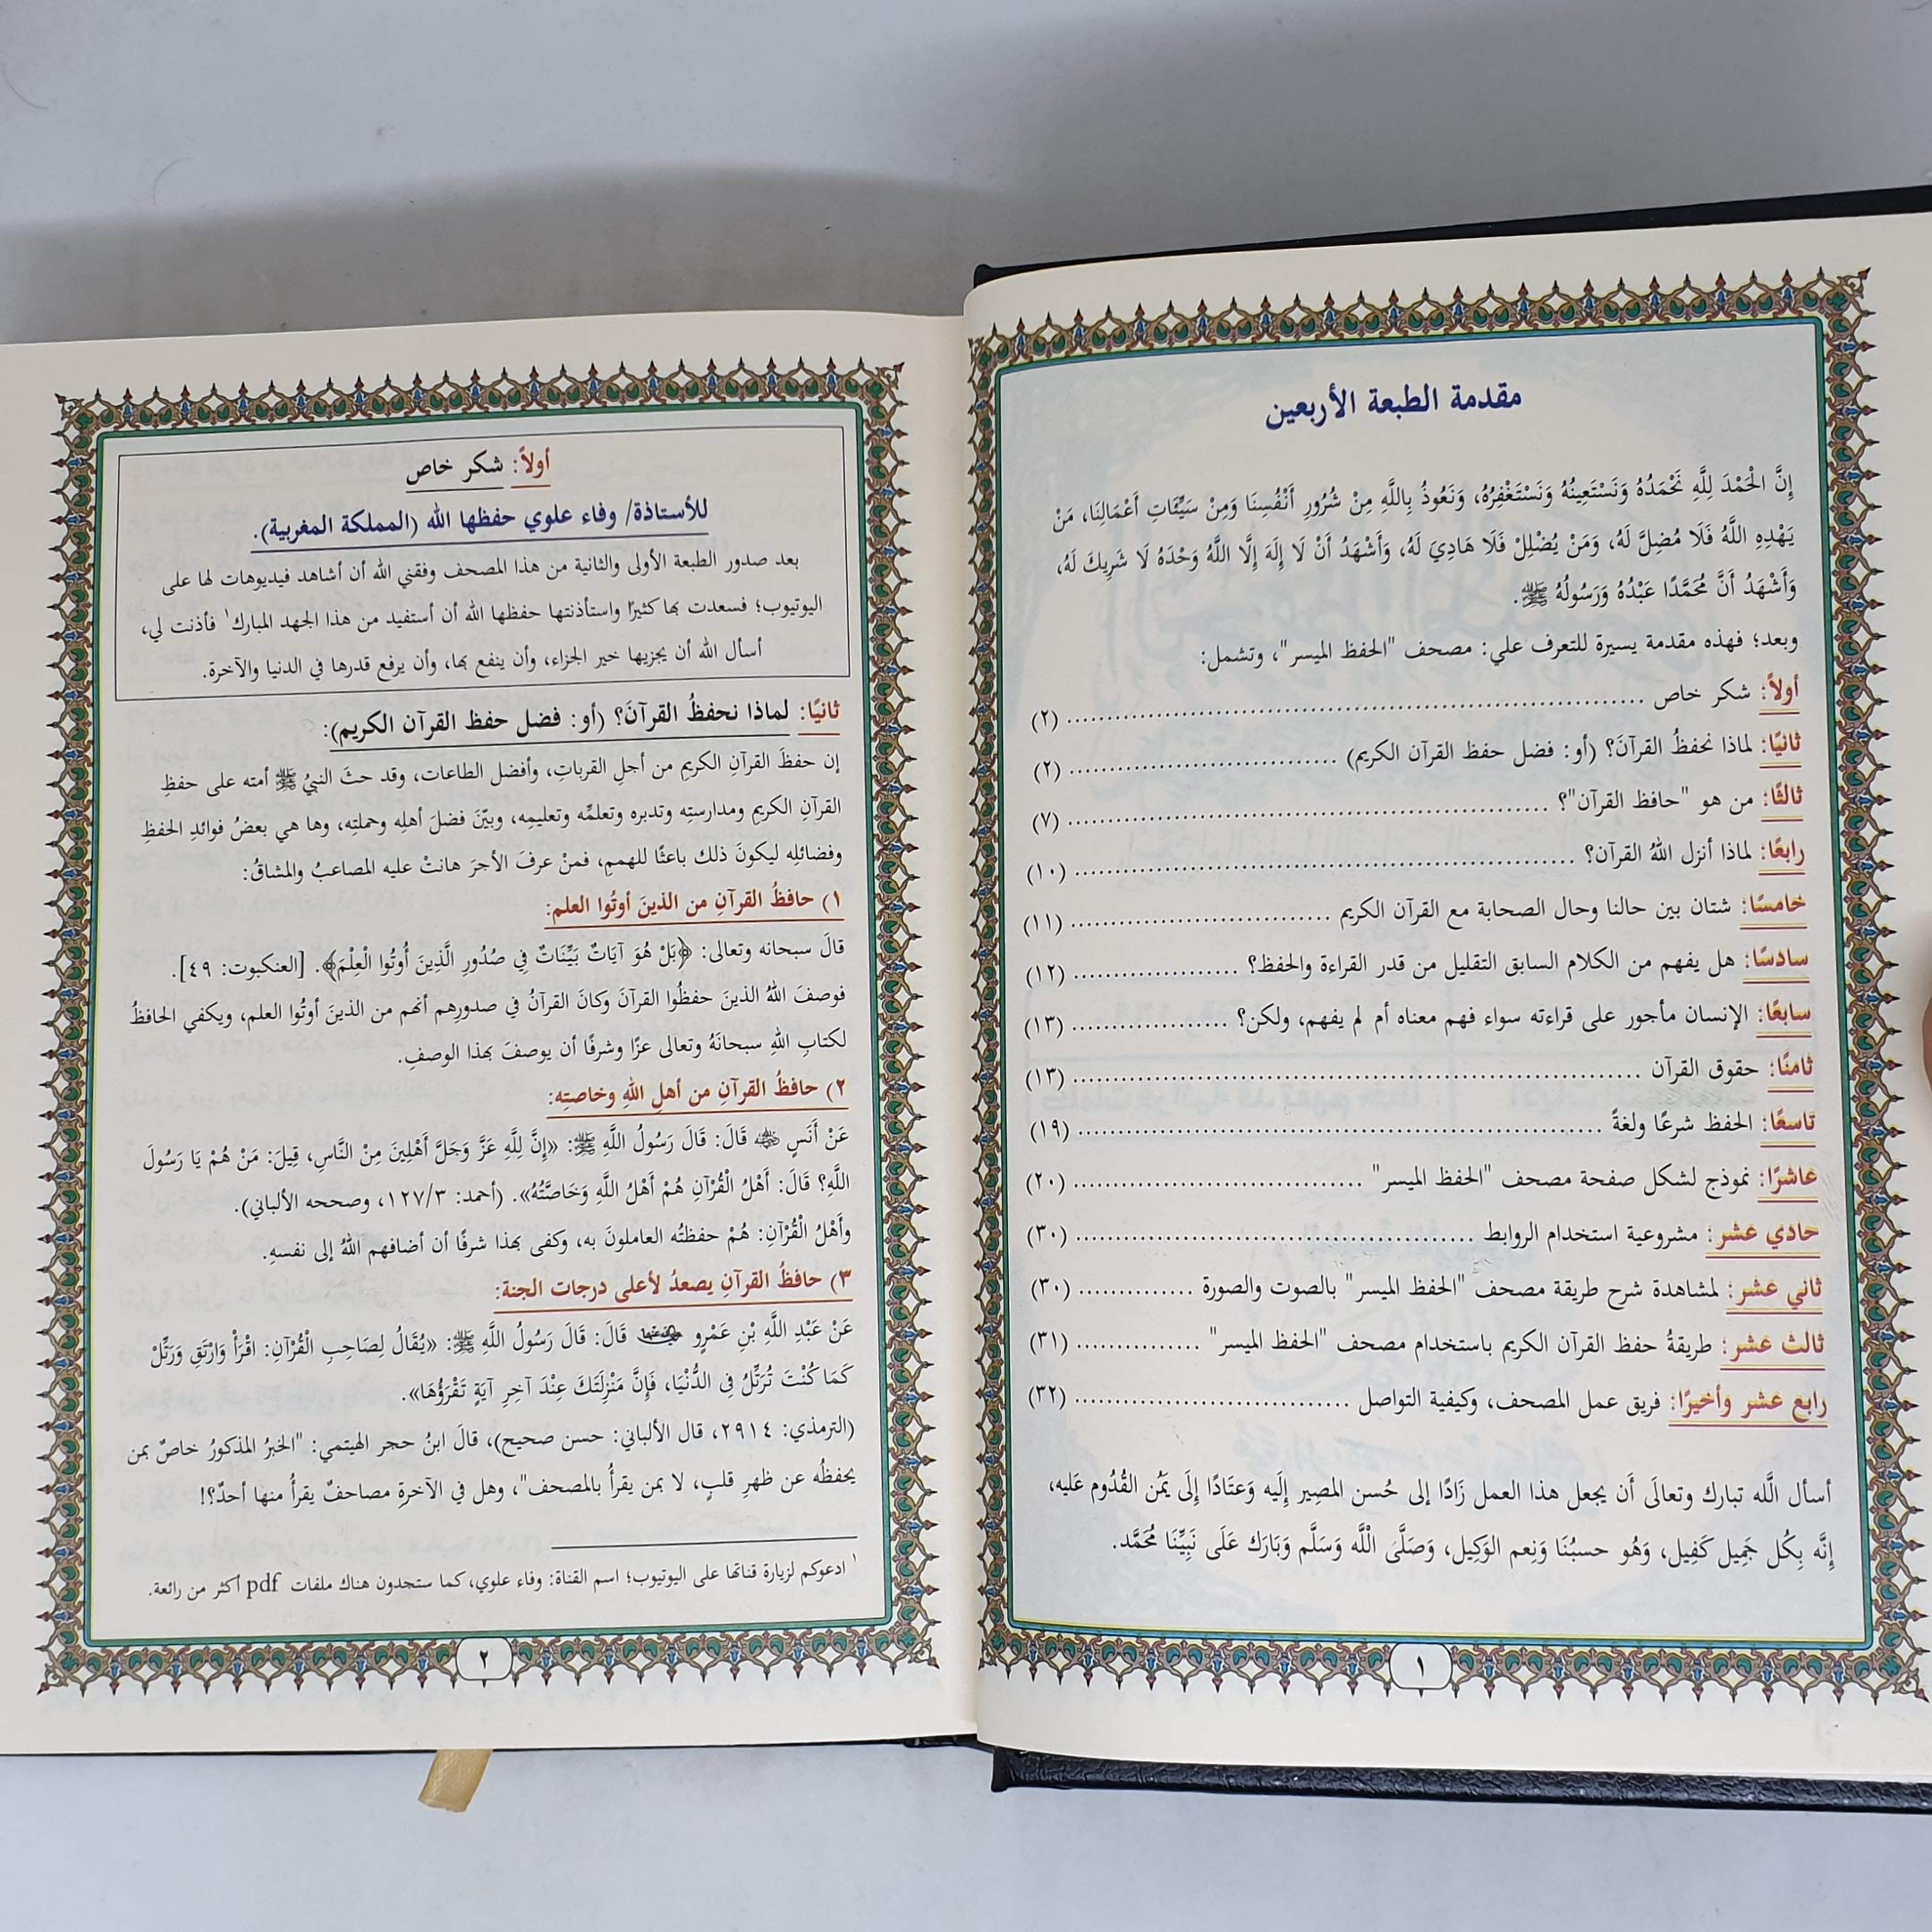 مقدمة الطبعة الأربعين
إِنَّ الْحَمْدَ لِلَّهِ نَحْمَدُهُ وَنَسْتَعِينُهُ وَنَسْتَغْفِرُهُ، وَنَعُوذُ بِاللَّهِ مِنْ شُرُورِ أَنْفُسِنَا وَمِنْ سَيِّئَاتِ أَعْمَالِنَا، مَنْ
يَهْدِهِ اللَّهُ فَلَا مُضِلَّ لَهُ، وَمَنْ يُضْلِلْ فَلَا هَادِيَ لَهُ، وَأَشْهَدُ أَنْ لَا إِلَهَ إِلَّا اللَّهُ وَحْدَهُ لَا شَرِيكَ لَهُ،
وَأَشْهَدُ أَنَّ مُحَمَّدًا عَبْدُهُ وَرَسُولُهُ ﷺ.
وبعد؛ فهذه مقدمة يسيرة للتعرف علي: مصحف "الحفظ الميسر"، وتشمل:
أولاً: شكر خاص ........................ (٢)
ثانيًا: لماذا نحفظُ القرآنَ؟ (أو: فضل حفظ القرآن الكريم) ........................ (٢)
ثالثًا: من هو "حافظ القرآن"؟ ........................ (٧)
رابعًا: لماذا أنزل اللهُ القرآن؟ ........................ (١٠)
خامسًا: شتان بين حالنا وحال الصحابة مع القرآن الكريم ........................ (١١)
سادسًا: هل يفهم من الكلام السابق التقليل من قدر القراءة والحفظ؟ .................. (١٢)
سابعًا: الإنسان مأجور على قراءته سواء فهم معناه أم لم يفهم، ولكن؟ .................. (١٣)
ثامنًا: حقوق القرآن ........................ (١٣)
تاسعًا: الحفظ شرعًا ولغةً ........................ (١٩)
عاشرًا: نموذج لشكل صفحة مصحف "الحفظ الميسر" ........................ (٢٠)
حادي عشر: مشروعية استخدام الروابط ........................ (٣٠)
ثاني عشر: لمشاهدة شرح طريقة مصحف "الحفظ الميسر" بالصوت والصورة .............. (٣٠)
ثالث عشر: طريقةُ حفظ القرآن الكريم باستخدام مصحف "الحفظ الميسر" .............. (٣١)
رابع عشر وأخيرًا: فريق عمل المصحف، وكيفية التواصل ........................ (٣٢)
أسأل الَّله تبارك وتعالَى أَن يجعل هذا العمل زَادًا إلى حُسن المصِير إِلَيه وَعتَادًا إِلَى يَمُن القُدُوم عَليه،
إِنَّه بِكُل جَمِيل كَفِيل، وَهُو حسبُنَا وَنِعم الوَكِيل، وَصَلَّى الْلَّه وَسَلَّم وَبَارَك عَلَى نَبِيِّنَا مُحَمَّد.
١
أولاً: شكر خاص
للأستاذة/ وفاء علوي حفظها الله (المملكة المغربية).
بعد صدور الطبعة الأولى والثانية من هذا المصحف وفقني الله أن أشاهد فيديوهات لها على
اليوتيوب؛ فسعدت بها كثيرًا واستأذنتها حفظها الله أن أستفيد من هذا الجهد المبارك¹ فأذنت لي،
أسأل الله أن يجزيها خير الجزاء، وأن ينفع بها، وأن يرفع قدرها في الدنيا والآخرة.
ثانيًا: لماذا نحفظُ القرآنَ؟ (أو: فضل حفظ القرآن الكريم):
إن حفظَ القرآنِ الكريمِ من أجلِ القرباتِ، وأفضل الطاعات، وقد حثَ النبيُ ﷺ أمته على حفظِ
القرآنِ الكريمِ ومدارستِه وتدبره وتعلمِّه وتعليمِه، وبيّنَ فضلَ أهلِه وحملتِه، وها هي بعضُ فوائدِ الحفظِ
وفضائلِه ليكونَ ذلك باعثًا للهممِ، فمنْ عرفَ الأجرَ هانتْ عليه المصاعبُ والمشاقُ:
١) حافظُ القرآنِ من الذينَ أوتُوا العلم:
قالَ سبحانه وتعالى: ﴿بَلْ هُوَ آيَاتٌ بَيِّنَاتٌ فِي صُدُورِ الَّذِينَ أُوتُوا الْعِلْمَ﴾. [العنكبوت: ٤٩].
فوصفَ اللهُ الذينَ حفظُوا القرآنَ وكانَ القرآنُ في صدورِهم أنهم من الذينَ أوتُوا العلم، ويكفي الحافظُ
لكتابِ اللهِ سبحانَهُ وتعالى عزًا وشرفًا أن يوصفَ بهذا الوصفِ.
٢) حافظُ القرآنِ من أهلِ اللهِ وخاصتِه:
عَنْ أَنَسٍ رضي الله عنه قَالَ: قَالَ رَسُولُ اللَّهِ ﷺ: «إِنَّ لِلَّهِ عَزَّ وَجَلَّ أَهْلِينَ مِنْ النَّاسِ، قِيلَ: مَنْ هُمْ يَا رَسُولَ
اللَّهِ؟ قَالَ: أَهْلُ الْقُرْآنِ هُمْ أَهْلُ اللَّهِ وَخَاصَّتُهُ». (أحمد: ١٢٧/٣، وصححه الألباني).
وأَهْلُ الْقُرْآنِ: هُمْ حفظتُه العاملونَ به، وكفى بهذا شرفًا أن أضافهم اللهُ إلى نفسهِ.
٣) حافظُ القرآنِ يصعدُ لأعلى درجات الجنة:
عَنْ عَبْدِ اللَّهِ بْنِ عَمْرٍو رضي الله عنهما قَالَ: قَالَ رَسُولُ اللَّهِ ﷺ: «يُقَالُ لِصَاحِبِ الْقُرْآنِ: اقْرَأْ وَارْتَقِ وَرَتِّلْ
كَمَا كُنْتَ تُرَتِّلُ فِي الدُّنْيَا، فَإِنَّ مَنْزِلَتَكَ عِنْدَ آخِرِ آيَةٍ تَقْرَؤُهَا».
(الترمذي: ٢٩١٤، قال الألباني: حسن صحيح)، قالَ ابنُ حجر الهيتمي: "الخبرُ المذكورُ خاصٌ بمن
يحفظُه عن ظهرِ قلبٍ، لا بمن يقرأُ بالمصحف"، وهل في الآخرةِ مصاحفٌ يقرأُ منها أحدٌ؟!
¹ ادعوكم لزيارة قناتها على اليوتيوب؛ اسم القناة: وفاء علوي، كما ستجدون هناك ملفات pdf أكثر من رائعة.
٢